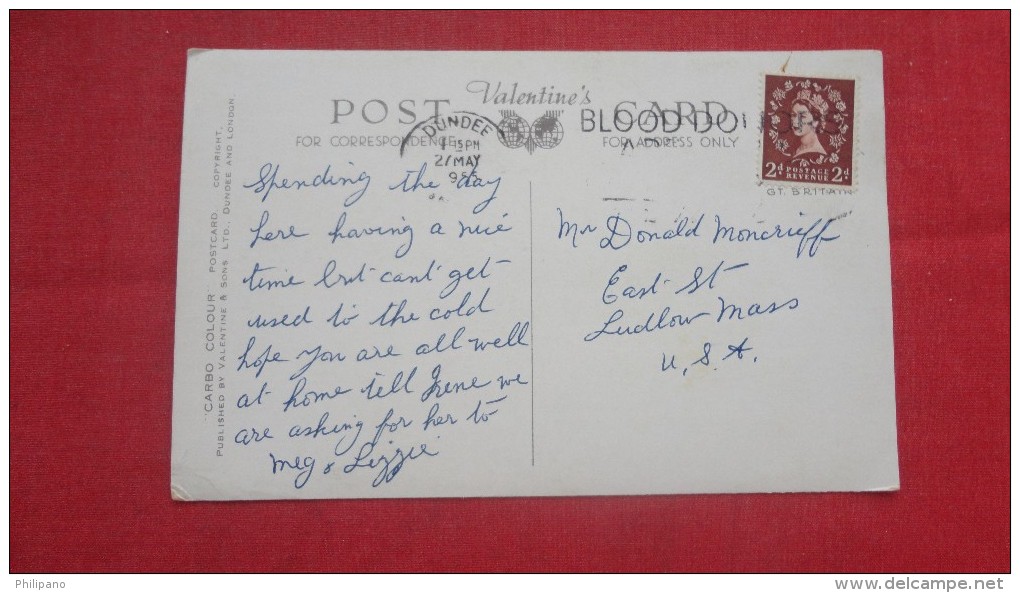 Valentine's
POST CARD
FOR CORRESPONDENCE
FOR ADDRESS ONLY
DUNDEE
15 PM
27 MAY
BLOOD DO
2d POSTAGE REVENUE 2d
GT. BRITAIN
"CARBO COLOUR" POSTCARD. COPYRIGHT.
PUBLISHED BY VALENTINE & SONS LTD., DUNDEE AND LONDON.
Spending the day
here having a nice
time but cant get
used to the cold
hope you are all well
at home tell Irene we
are asking for her to
Meg & Lizzie
Mr Donald Moncrieff
East St
Ludlow Mass
U.S.A.
Philipano
www.delcampe.net